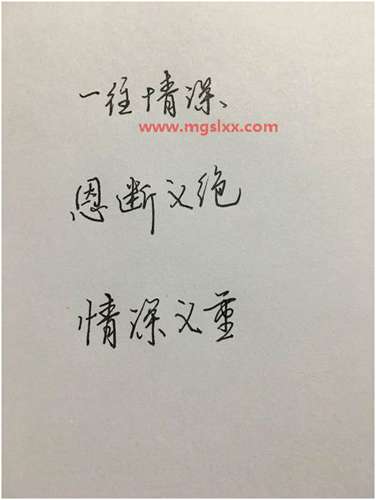 一往情深、
www.mgslxx.com
恩断义绝
情深义重